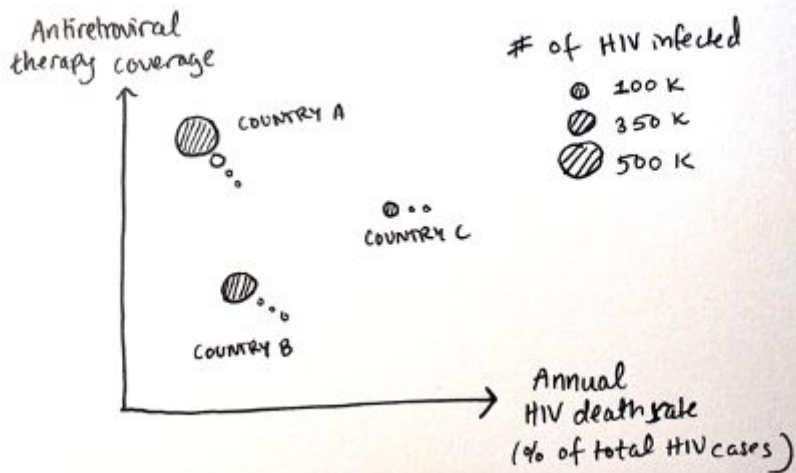 Antiretroviral
therapy coverage
# of HIV infected
100 K
350 K
500 K
COUNTRY A
COUNTRY C
COUNTRY B
Annual
HIV death rate
(% of total HIV cases)